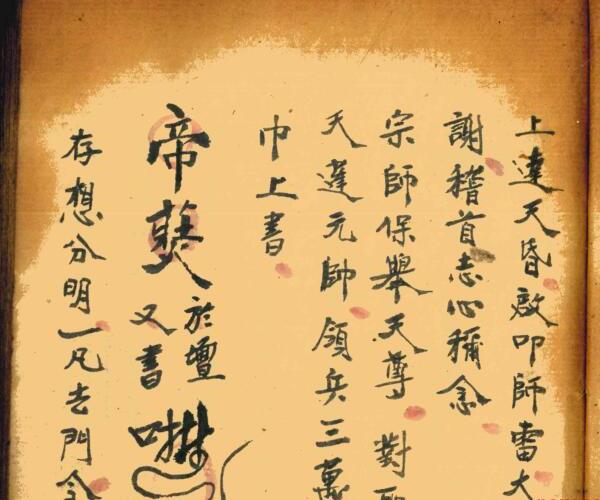 上達天昏啟叩師雷大
謝稽首志心稱念
宗師保舉天尊 對
天蓬元帥領兵三萬
巾上書
帝 於壇
又書
存想分明一凡去門令